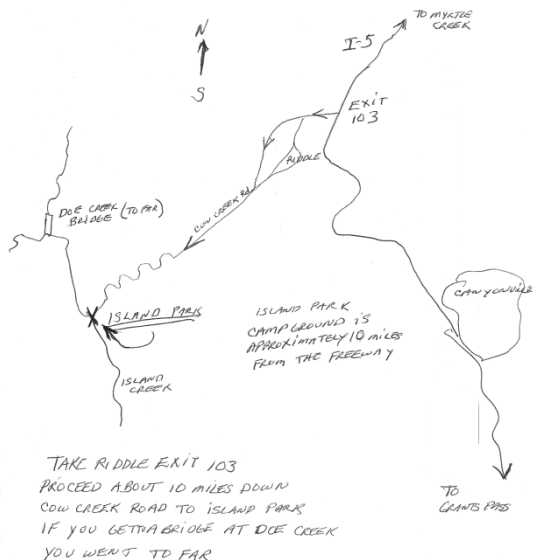 TO MYRTLE
CREEK
N
I-5
S
EXIT
103
RIDDLE
COW CREEK Rd
DOE CREEK
BRIDGE (TO FAR)
CANYONVILLE
ISLAND PARK
ISLAND PARK
CAMPGROUND is
APPROXIMATELY 10 MILES
FROM THE FREEWAY
ISLAND
CREEK
TAKE RIDDLE EXIT 103
PROCEED ABOUT 10 MILES DOWN
COW CREEK ROAD TO ISLAND PARK
IF YOU GET TO A BRIDGE AT DOE CREEK
YOU WENT TO FAR
TO
GRANTS PASS